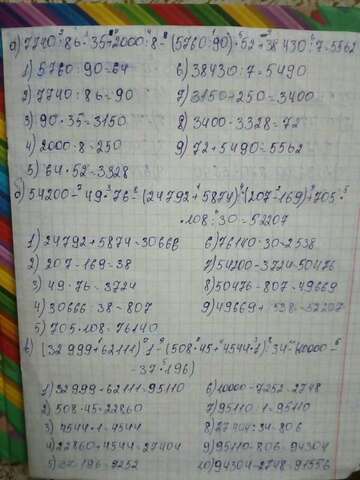 а) 7740:86·35+2000:8-(5760:90)·52+38430:7=5562
1) 5760:90=64 6) 38430:7=5490
2) 7740:86=90 7) 3150+250=3400
3) 90·35=3150 8) 3400-3328=72
4) 2000:8=250 9) 72+5490=5562
5) 64·52=3328
б) 54200-49·76-(24792+5874):(207-169)+705·
·108:30=52207
1) 24792+5874=30666 6) 76140:30=2538
2) 207-169=38 7) 54200-3724=50476
3) 49·76=3724 8) 50476-807=49669
4) 30666:38=807 9) 49669+2538=52207
5) 705·108=76140
в) (32999+62111):1-(508·45+4544·1):34-(10000-
-37·196)
1) 32999+62111=95110 6) 10000-7252=2748
2) 508·45=22860 7) 95110:1=95110
3) 4544·1=4544 8) 27404:34=806
4) 22860+4544=27404 9) 95110-806=94304
5) 37·196=7252 10) 94304-2748=91556